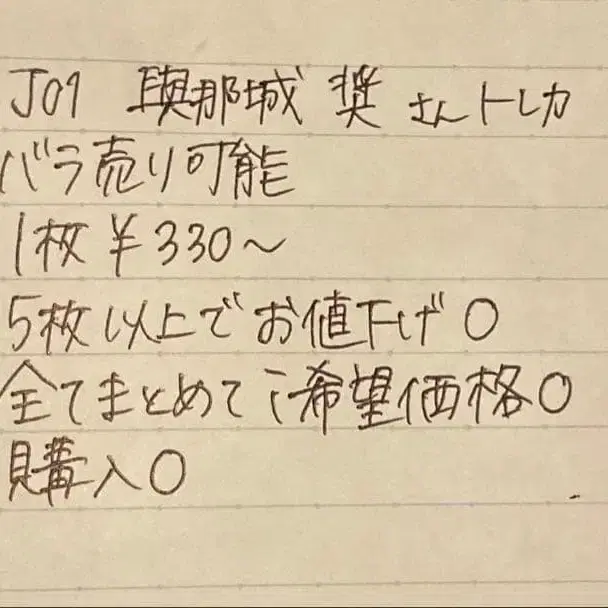 JO1 與那城 奨 さんトレカ
バラ売り可能
1枚 ¥330〜
5枚以上でお値下げ〇
全てまとめてご希望価格〇
購入〇